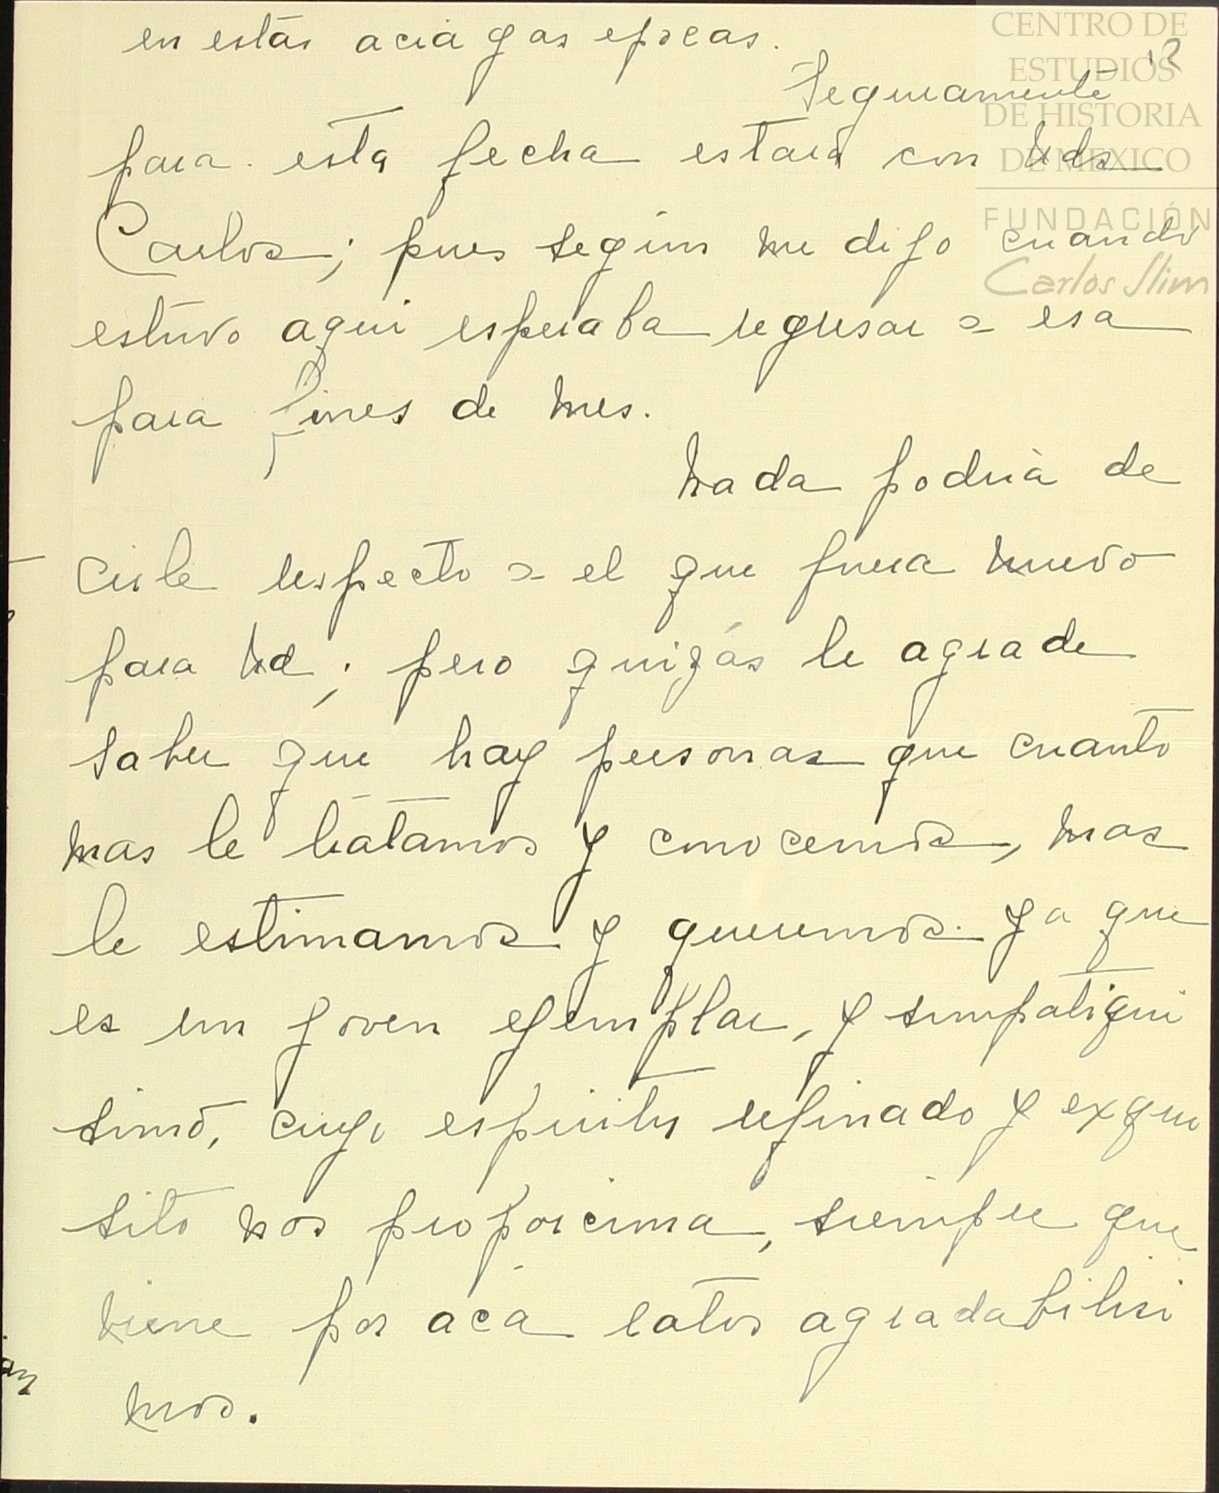 en estas aciagas epocas.
12
Seguramente
para esta fecha estará con Uds
Carlos; pues según me dijo cuando
estuvo aqui esperaba regresar a esa
para fines de mes.
Nada podria de
cirle respecto a el que fuera nuevo
para Ud; pero quizás le agrade
saber que hay personas que cuanto
mas le tratamos y conocemos, mas
le estimamos y queremos. ya que
es un joven ejemplar, y simpatiqui
simo, cuyo espiritu refinado y exqui
sito nos proporciona, siempre que
viene por acá ratos agradabilisi
mos.
CENTRO DE
ESTUDIOS
DE HISTORIA
DE MEXICO
FUNDACIÓN
Carlos Slim